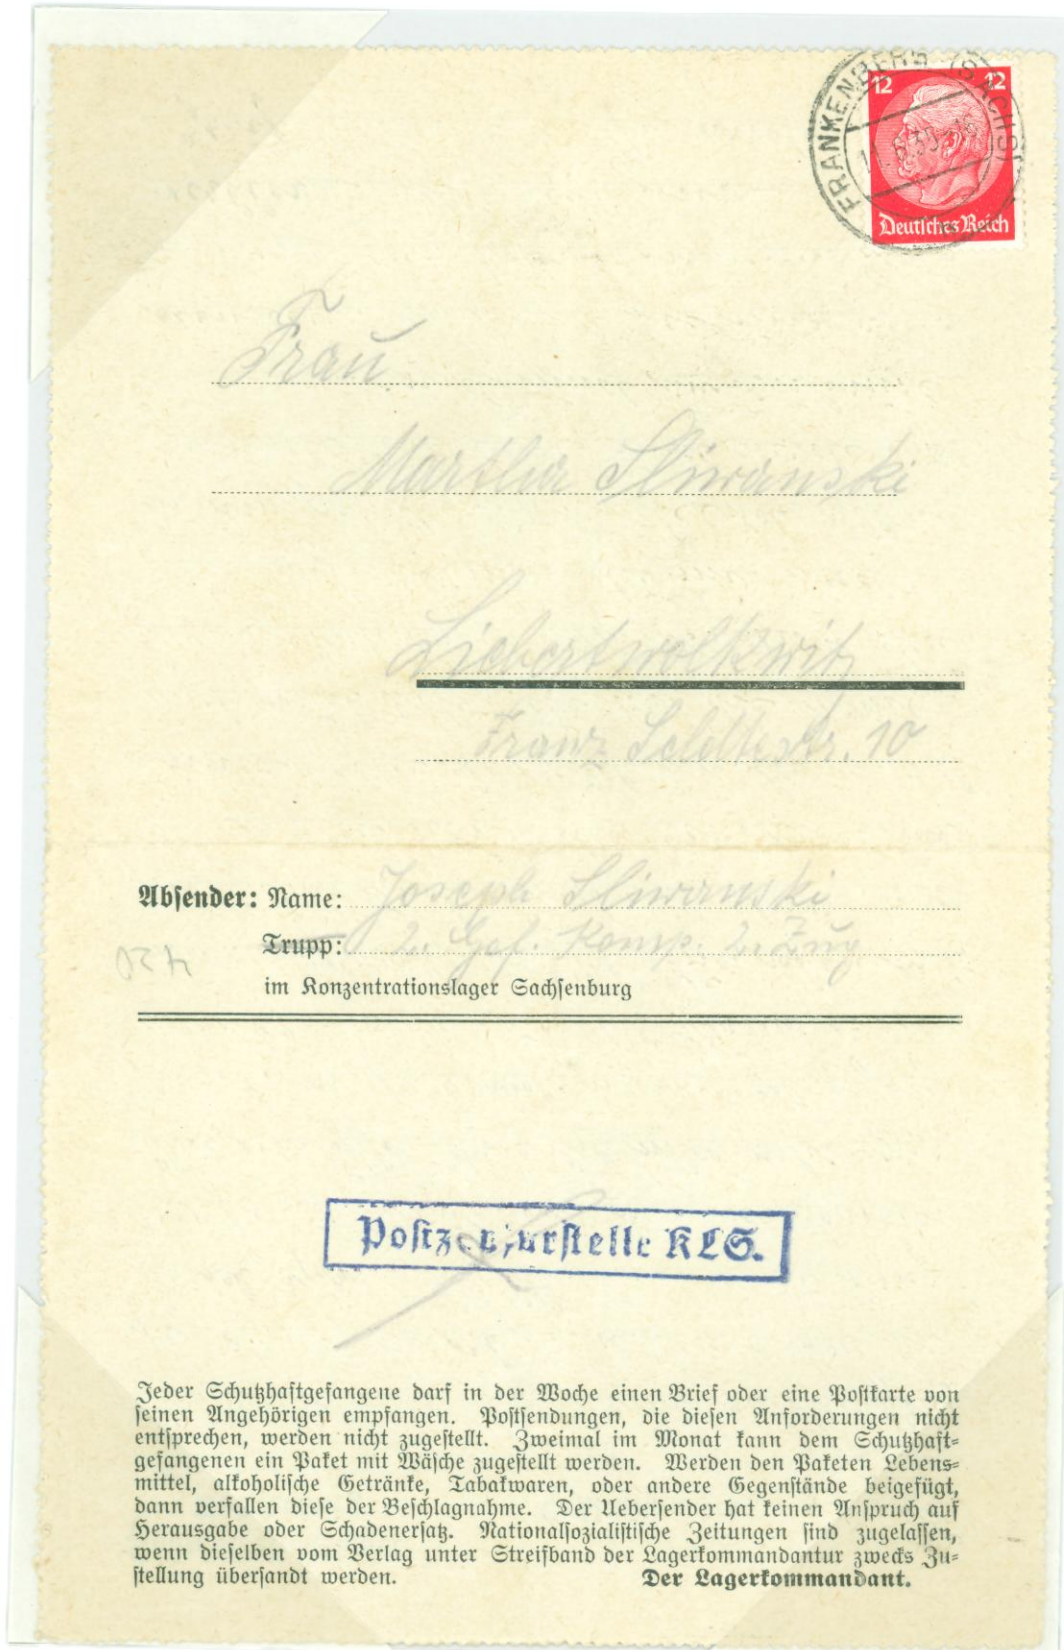 12 12
FRANKENBERG (SACHS)
Deutsches Reich
Frau
Martha Sliwanski
Liebertwolkwitz
Franz Seldtestr. 10
Absender: Name: Joseph Sliwanski
Trupp: 2. Gef. Komp. 2. Zug
im Konzentrationslager Sachsenburg
Postzensurstelle KLS.
Jeder Schutzhaftgefangene darf in der Woche einen Brief oder eine Postkarte von
seinen Angehörigen empfangen. Postsendungen, die diesen Anforderungen nicht
entsprechen, werden nicht zugestellt. Zweimal im Monat kann dem Schutzhaft-
gefangenen ein Paket mit Wäsche zugestellt werden. Werden den Paketen Lebens-
mittel, alkoholische Getränke, Tabakwaren, oder andere Gegenstände beigefügt,
dann verfallen diese der Beschlagnahme. Der Uebersender hat keinen Anspruch auf
Herausgabe oder Schadenersatz. Nationalsozialistische Zeitungen sind zugelassen,
wenn dieselben vom Verlag unter Streifband der Lagerkommandantur zwecks Zu-
stellung übersandt werden. Der Lagerkommandant.